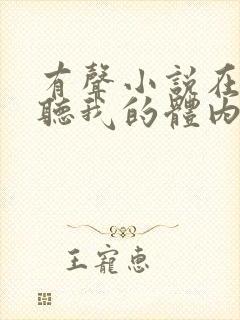 有聲小說在
聽我的體內
王寵惠